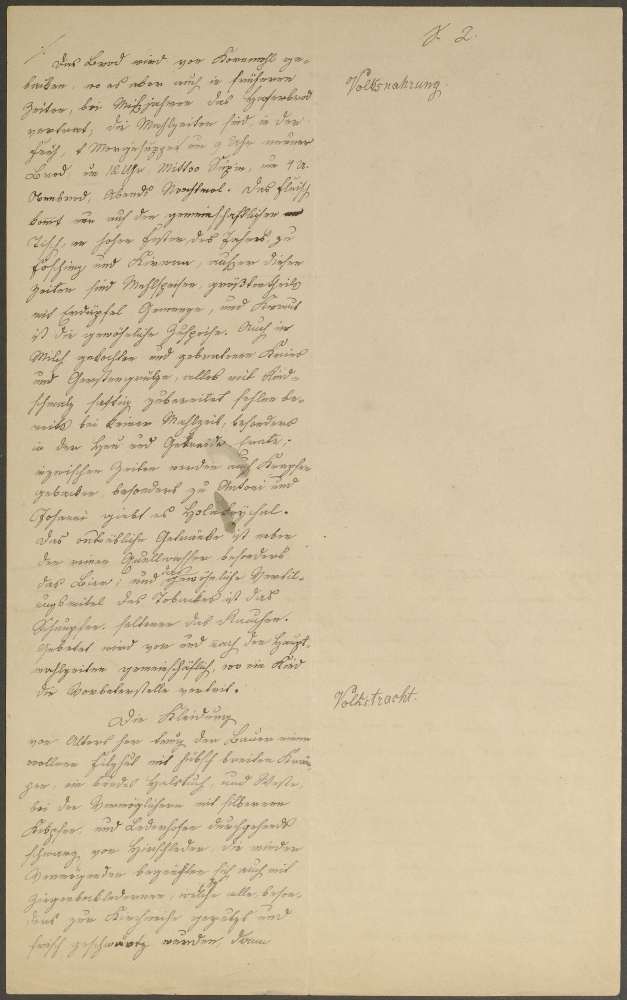 S. 2.
Volksnahrung
Das Brod wird von Kornmehl ge-
backen, wo es aber auch in früheren
Zeiten, bei Mißjahren das Haferbrod
vertrat; die Mahlzeiten sind, in der
Früh, Morgensuppe um 9 Uhr
Brod, um 12 Uhr, Mittag, um 4 U.
Abendbrod, Abends Nachtmal. Das Fleisch
kommt nur auf den gemeinschaftlichen
Tisch, an hohen Festen des Jahres, zu
Fasching und Kirwa, außer diesen
Zeiten sind Mehlspeisen, größtentheils
mit Erdäpfel Gemenge, und Kraut
ist die gewöhnliche Zuspeise. Auch in
Milch gekochter und gebratener
und Gerstengrütze, alles mit Rind-
schmalz fettig zubereitet fehlen be-
reits bei keiner Mahlzeit, besonders
in der Heu und Getreide Ernte,
inzwischen Zeiten werden auch Krapfen
gebacken, besonders zu Antoni und
Johanni giebt es
Das ortsübliche Getränke ist neben
den reinen Quellwasser besonders
das Bier; und das gewöhnliche
des Tobackes ist das
Schnupfen, seltener das Rauchen.
Gebetet wird vor und nach den Haupt-
mahlzeiten gemeinschäftlich, wo ein Kind
die Vorbeterstelle vertritt.
Volkstracht.
Die Kleidung
von Alters her trug der Bauer einen
wollenen Filzhut mit hübsch breiten
ein buntes Halstuch, und Weste,
bei den Vermöglichern mit silbernen
Knöpfen, und Lederhosen durchgehends
schwarz von Hirschleder, die minder
Vermögenden begnügten sich auch mit
Ziegenbockledernen, welche alle beson-
ders zur Kirchweihe geputzt und
frisch geschwärtz wurden, dann